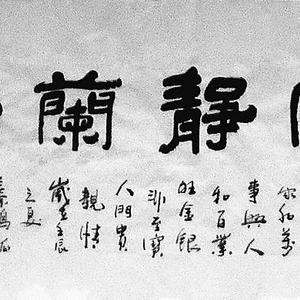 靜蘭
家和萬
事興人
和百業
旺金銀
非至寶
人間貴
親情
歲在壬辰
之夏